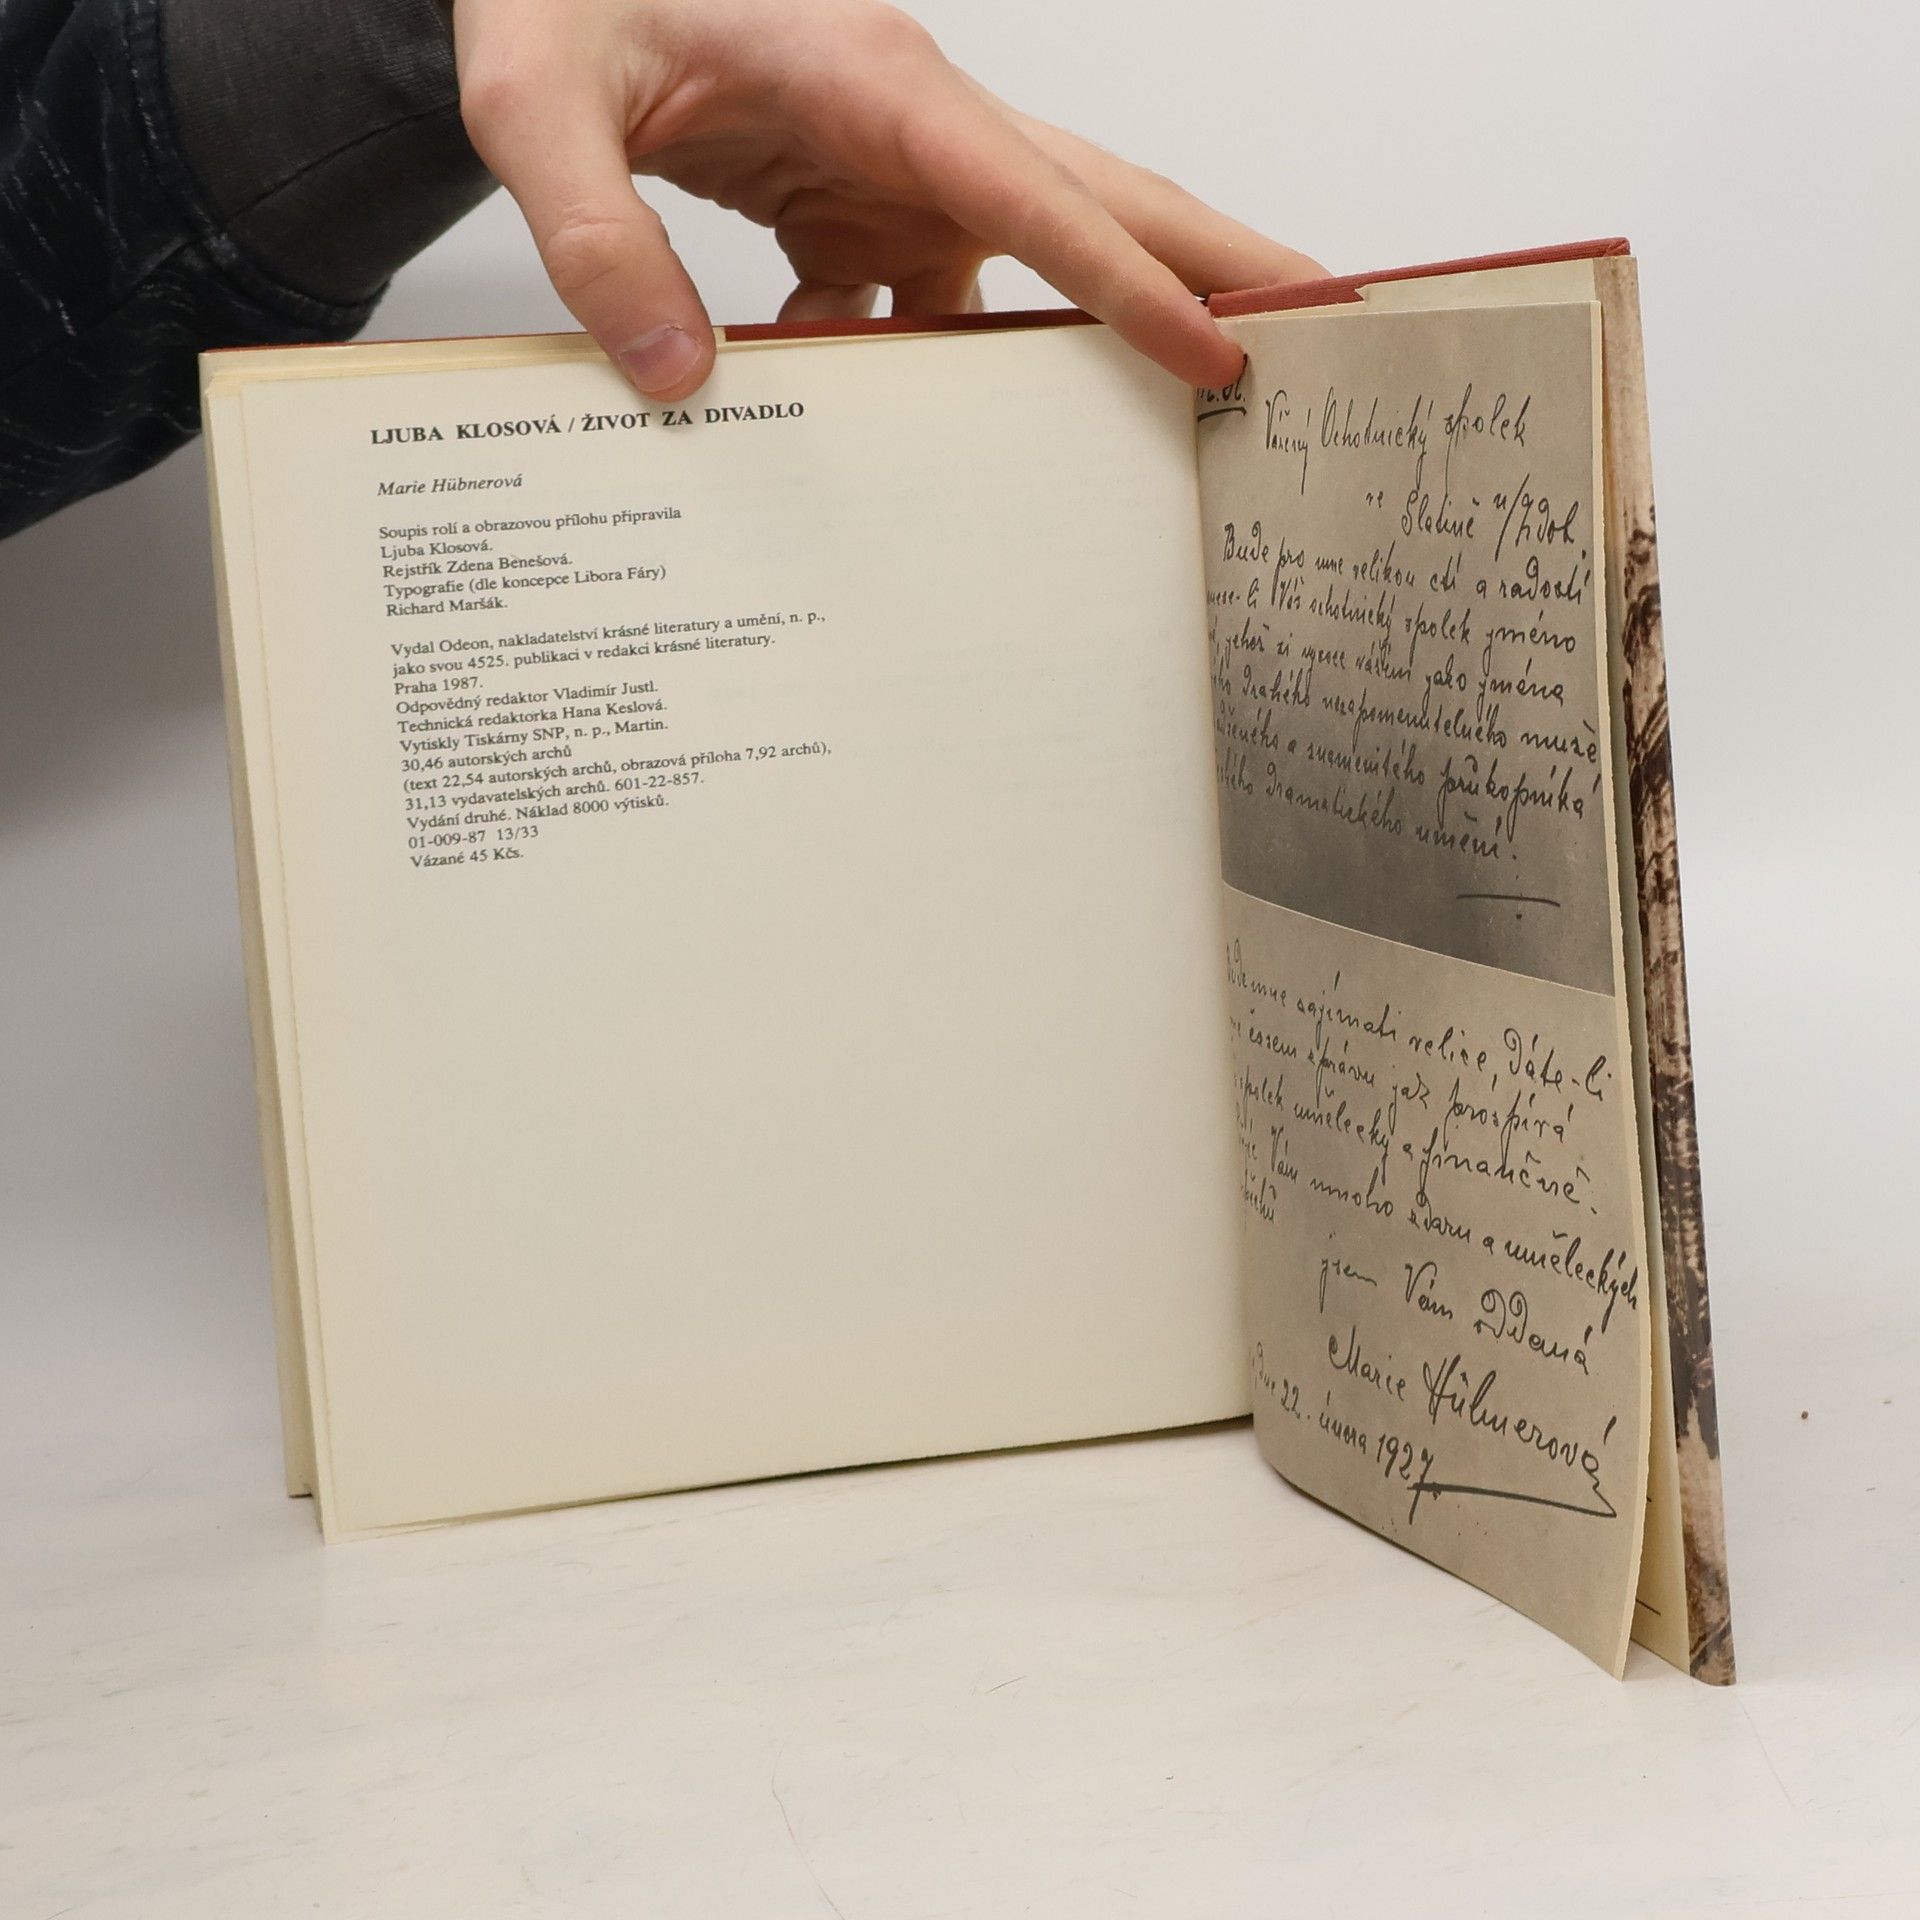 LJUBA KLOSOVÁ / ŽIVOT ZA DIVADLO
Marie Hübnerová
Soupis rolí a obrazovou přílohu připravila
Ljuba Klosová.
Rejstřík Zdena Benešová.
Typografie (dle koncepce Libora Fáry)
Richard Maršák.
Vydal Odeon, nakladatelství krásné literatury a umění, n. p.,
jako svou 4525. publikaci v redakci krásné literatury.
Praha 1987.
Odpovědný redaktor Vladimír Justl.
Technická redaktorka Hana Keslová.
Vytiskly Tiskárny SNP, n. p., Martin.
30,46 autorských archů
(text 22,54 autorských archů, obrazová příloha 7,92 archů),
31,13 vydavatelských archů. 601-22-857.
Vydání druhé. Náklad 8000 výtisků.
01-009-87 13/33
Vázané 45 Kčs.
Vážený Ochotnický spolek
ve Slatině n/Zdob.
Bude pro mne velikou ctí a radostí
Váš ochotnický spolek jméno
jehož si vysoce vážím jako jména
drahého nezapomenutelného muže
a znamenitého průkopníka
dramatického umění.
mne zajímati velice, Dáte-li
časem zprávu jak prospívá
spolek umělecky a finančně.
Vám mnoho zdaru a uměleckých
jsem Vám oddaná
Marie Hübnerová
dne 22. února 1927.